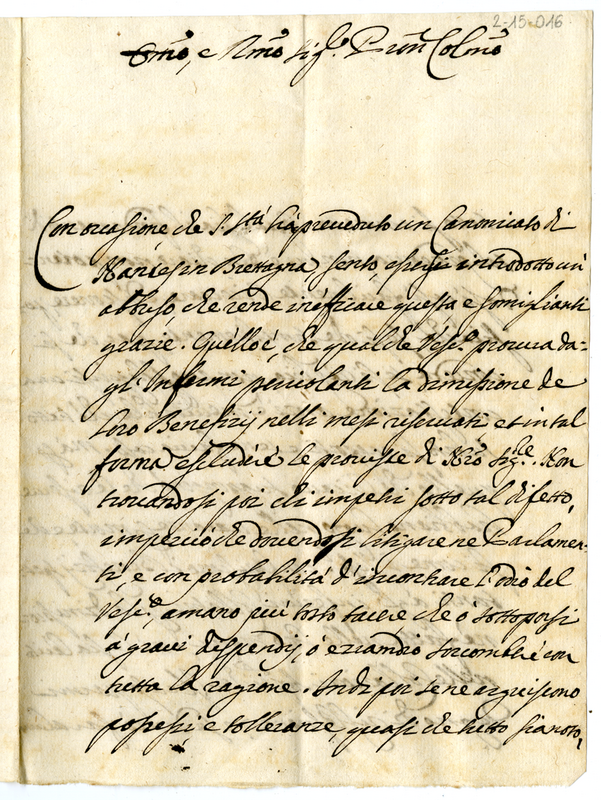 2-15-016
Emo, e Rmo Sig.r P.ron Colmo
Con occasione che S. Stà hà proveduto un Canonicato di
Nantes in Bretagna, sento, esservi introdotto un'
abbuso, che rende inefficace questa e somiglianti
grazie. Quello è, che qualche Vesc.o procura da-
gl'Infermi pericolanti la dimissione de
loro Benefizij nelli mesi riservati et in tal
forma escludere le proviste di Nro Sig.re. Non
trovandosi poi chi impetri sotto tal difetto,
imperciò che dovendosi litigare ne Parlamen-
ti, e con probabilità d'incontrare l'odio del
Vesc.o, amano più tosto tacere che ò sottoporsi
à gravi dispendij, ò eziandio soccombere con
tutta la ragione. Indi poi se ne acquistono
possessi e tolleranze, quasi che tutto sia noto,